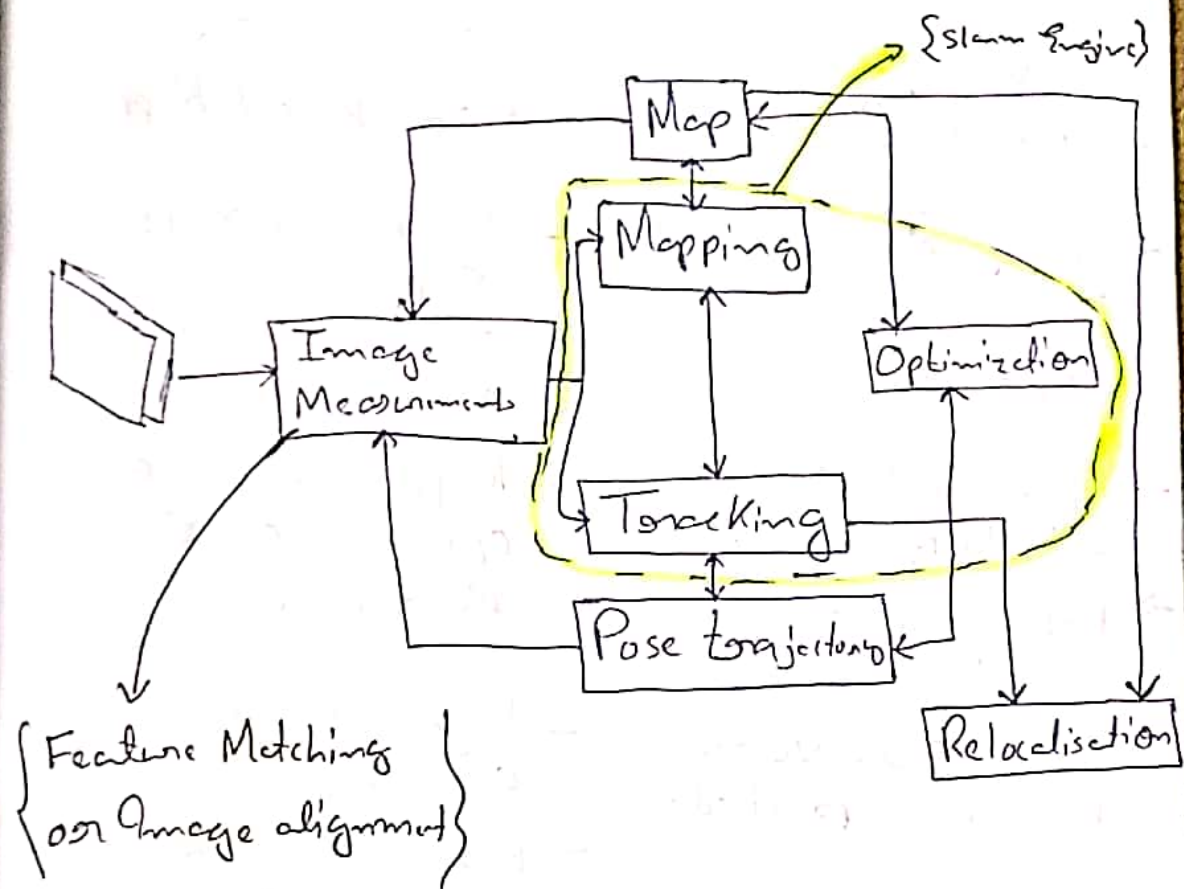 {Slam Engine}
Map
Mapping
Image
Measurements
Optimization
Tracking
Pose trajectory
Relocalisation
{Feature Matching
or Image alignment}